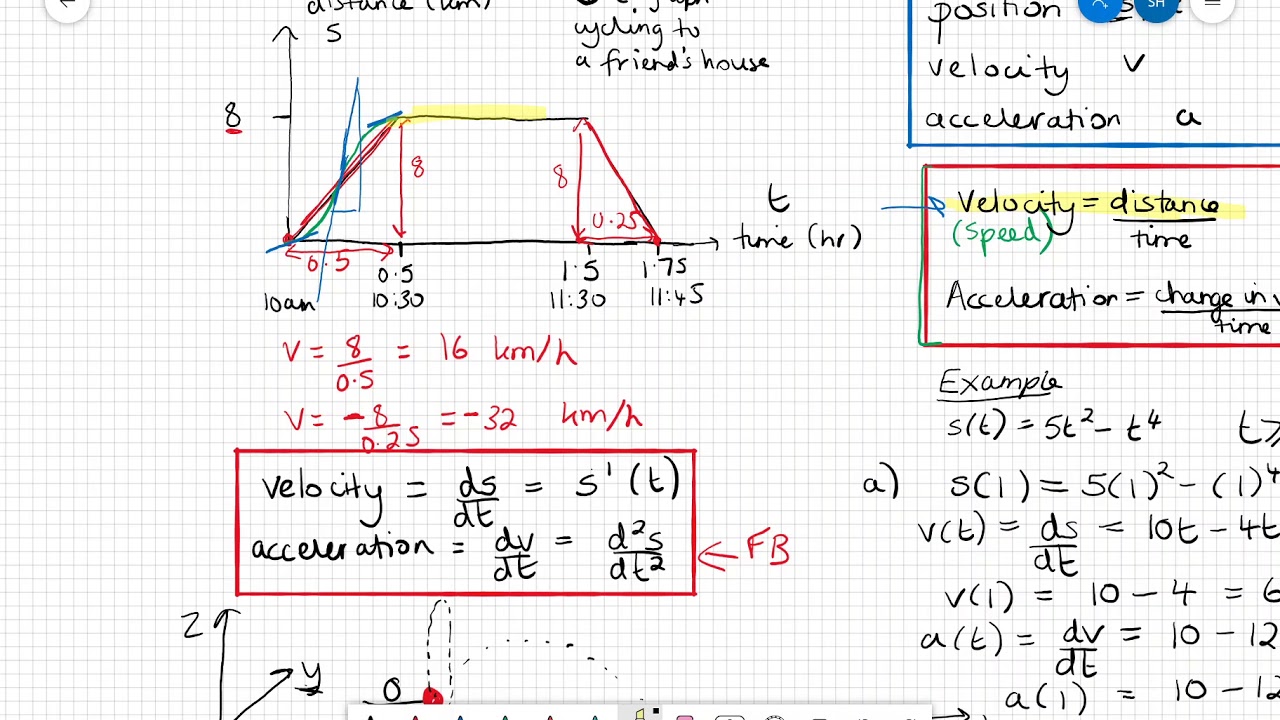 distance (km)
S
graph
cycling to
a friend's house
8
8
8
0.25
t
time (hr)
0.5
0.5
1.5
1.75
10am
10:30
11:30
11:45
V = 8/0.5 = 16 km/h
V = -8/0.25 = -32 km/h
velocity = ds/dt = s'(t)
acceleration = dv/dt = d²s/dt²
← FB
Z
y
O
SH
position S
velocity V
acceleration a
Velocity = distance/time
(Speed)
Acceleration = change in v/time
Example
s(t) = 5t² - t⁴ t ≥
a) s(1) = 5(1)² - (1)⁴
v(t) = ds/dt = 10t - 4t
v(1) = 10 - 4 = 6
a(t) = dv/dt = 10 - 12
a(1) = 10 - 12